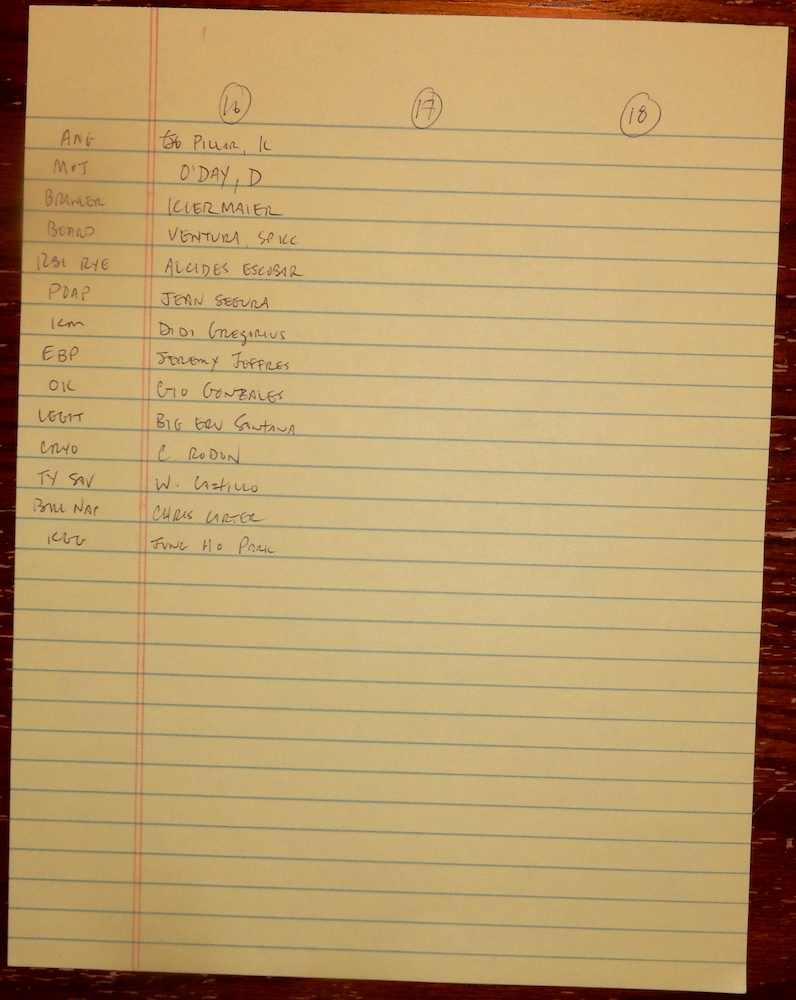 16 17 18
ANG PILLAR, K
MOT O'DAY, D
BRAWLER KIERMAIER
BEARD VENTURA, SPICC
RBI RYE ALCIDES ESCOBAR
PDAP JEAN SEGURA
KM DIDI GREGORIUS
EBP JEREMY JEFFRES
OK GIO GONZALES
LEGIT BIG ERV SANTANA
CRYO C. RODON
TY SAV W. CASTILLO
BILL NAP CHRIS CARTER
KGG JUNG HO PARK